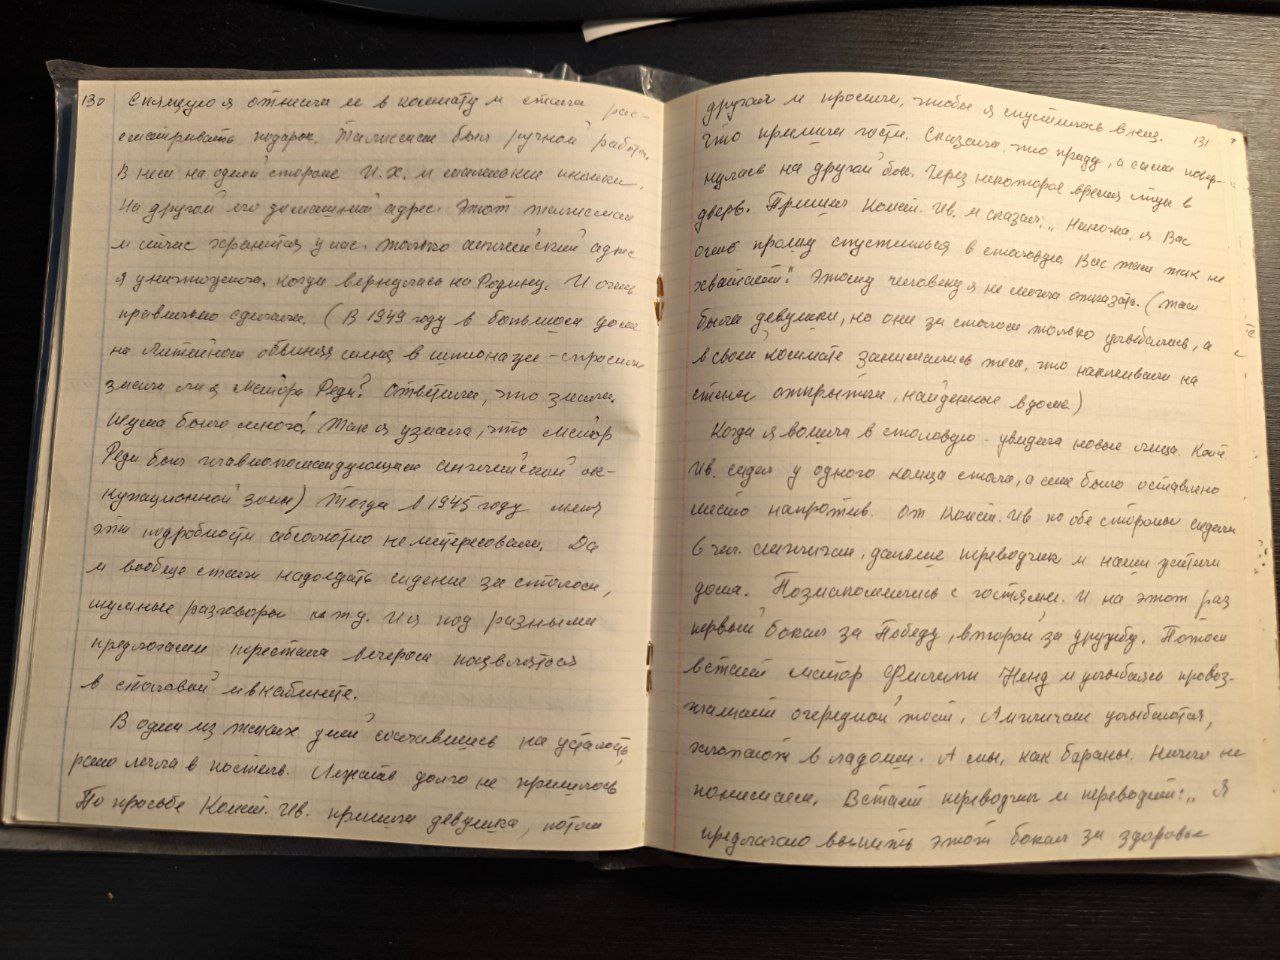 130
Спящую я отнесла ее в комнату и стала рас-
сматривать подарок. Талисман был ручной работы.
В нем на одной стороне И.Х. и маленькие иконки.
На другой его домашний адрес. Этот талисман
и сейчас хранится у нас. Только английский адрес
я уничтожила, когда вернулась на Родину. И очень
правильно сделала. (В 1949 году в большом доме
на Литейном обвиняя меня в шпионаже - спросили
знала ли я Майора Реди? Ответила, что знала.
Шума было много! Так я узнала, что Майор
Реди был главнокомандующим английской ок-
купационной зоны) Тогда в 1945 году меня
эти подробности абсолютно не интересовали. Да
и вообще стали надоедать сидение за столом,
шумные разговоры и т.д. И я под разными
предлогами перестала вечером появляться
в столовой и в кабинете.
В один из таких дней сославшись на усталость,
рано легла в постель. Лежать долго не пришлось
По просьбе Конст. Ив. пришла девушка, потом
131
другая и просили, чтобы я спустилась вниз.
Что пришли гости. Сказала, что приду, а сама повер-
нулась на другой бок. Через некоторое время стук в
дверь. Пришел Конст. Ив. и сказал: „ Ниночка, я Вас
очень прошу спуститься в столовую Вас там так не
хватает". Этому человеку я не могла отказать. (там
были девушки, но они за столом только улыбались, а
в своей комнате занимались тем, что наклеивали на
стены открытки, найденные в доме.)
Когда я вошла в столовую - увидела новые лица. Конст.
Ив. сидел у одного конца стола, а мне было оставлено
место напротив. От Конст. Ив по обе стороны сидели
6 чел. англичан, дальше переводчик и наши
дома. Познакомились с гостями. И на этот раз
первый бокал за Победу, второй за дружбу. Потом
встает майор Филипп Кенд и улыбаясь провоз-
глашает очередной тост. Англичане улыбаются,
хлопают в ладоши. А мы, как бараны. Ничего не
понимаем. Встает переводчик и переводит: „ Я
предлагаю выпить этот бокал за здоровье